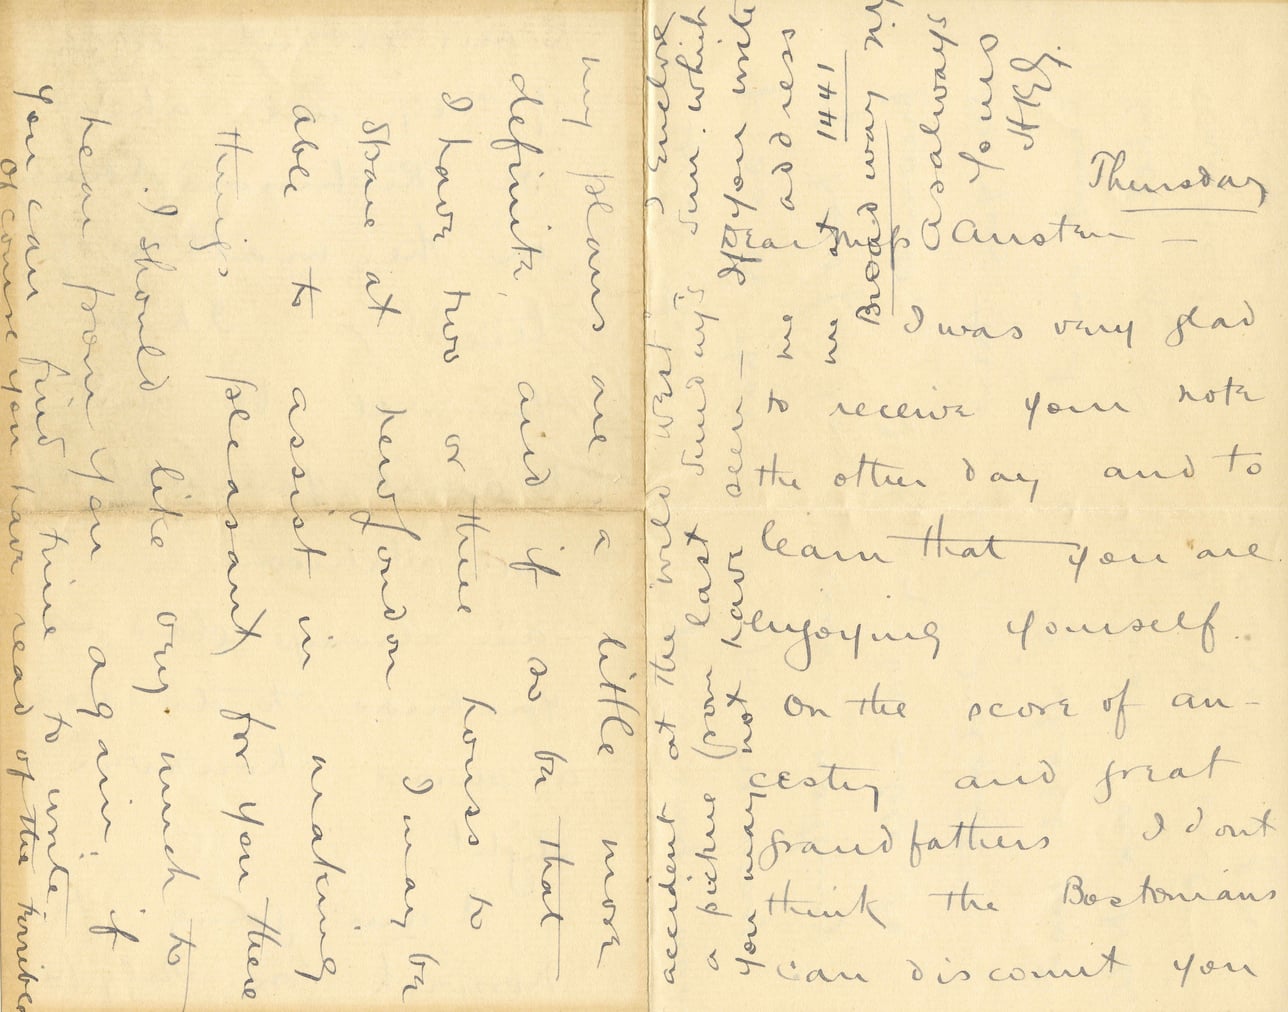 Thursday
Dear Miss Austen —
I was very glad
to receive your note
the other day and to
learn that you are
enjoying yourself.
On the score of an-
cestry and great
grandfathers I dont
think the Bostonians
can discount you
my plans are a little more
definite, and if so be that
I have two or three hours to
spare at New London I may be
able to assist in making
things pleasant for you there
. I should like very much to
hear from you again, if
you can find time to write
Of course you have read of the terrible
accident at the Wild West. I enclose
a picture from last Sunday's Sun. which
you may not have seen — If you write
me address
me at 1441
Broadway
As always
Yours